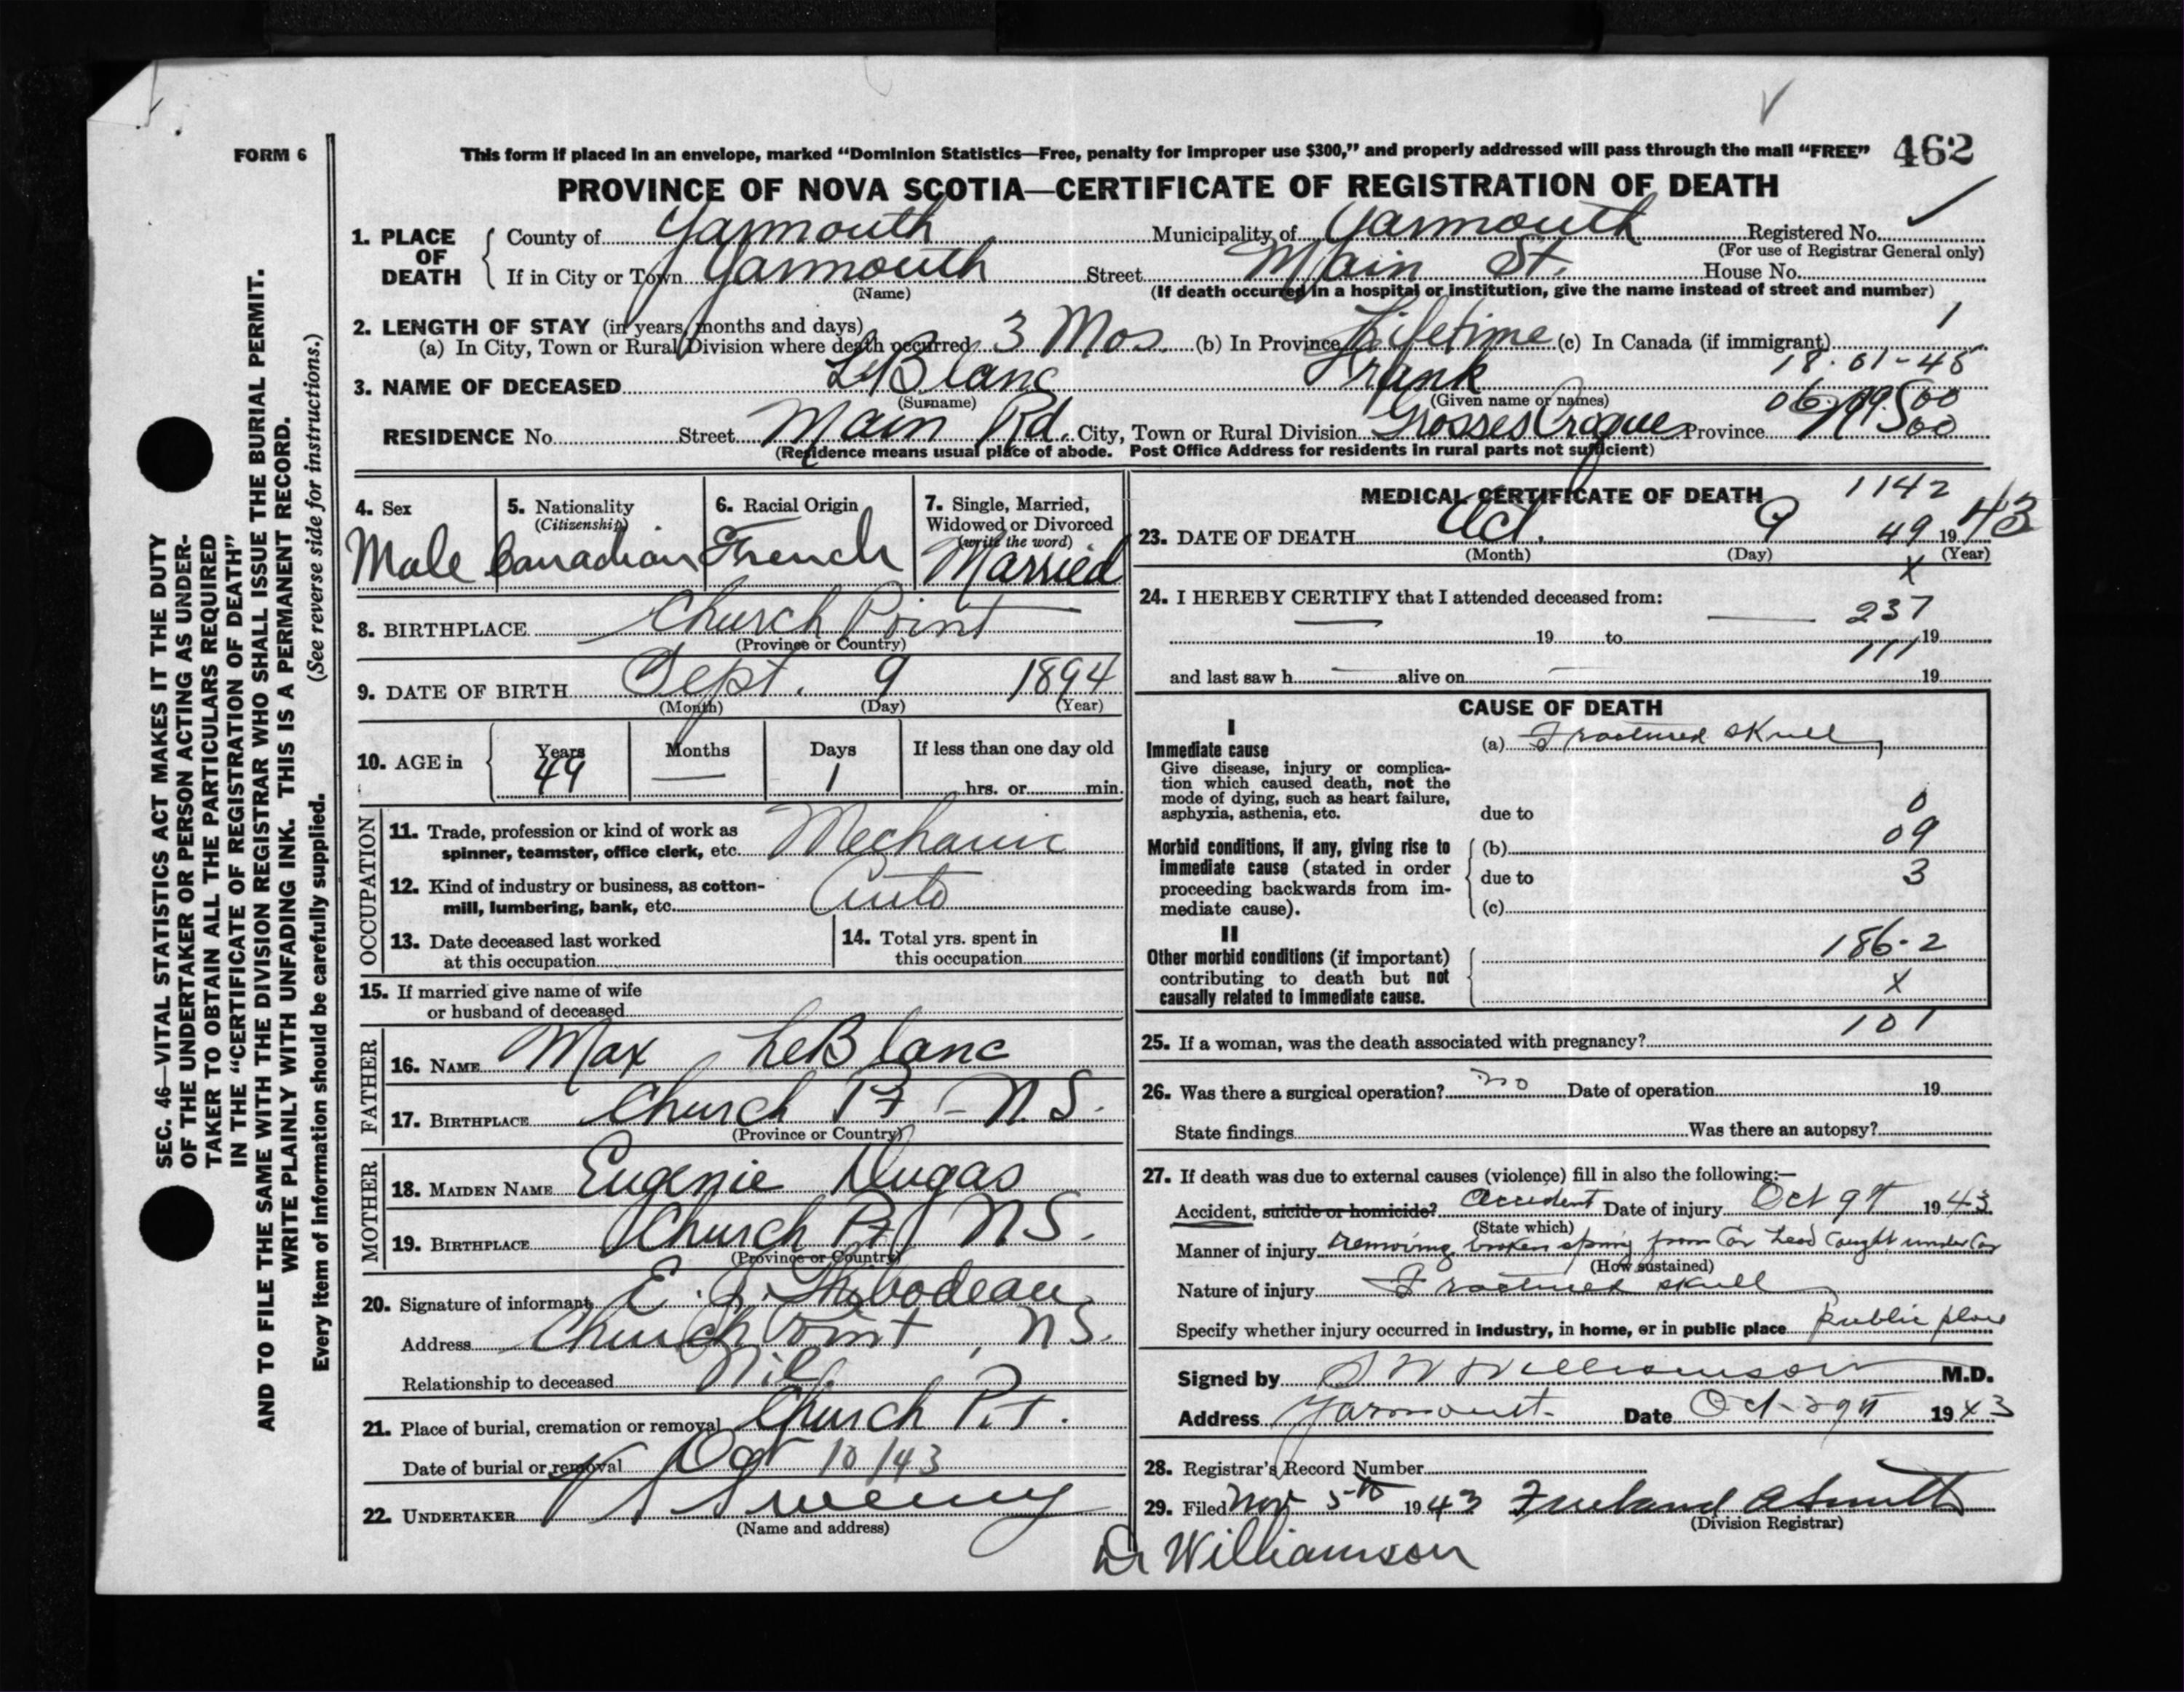 FORM 6
This form if placed in an envelope, marked “Dominion Statistics—Free, penalty for improper use $300,” and properly addressed will pass through the mail “FREE” 462
PROVINCE OF NOVA SCOTIA—CERTIFICATE OF REGISTRATION OF DEATH
1. PLACE OF DEATH County of Yarmouth Municipality of Yarmouth Registered No.
(For use of Registrar General only)
If in City or Town Yarmouth Street Main St. House No.
(Name) (If death occurred in a hospital or institution, give the name instead of street and number)
2. LENGTH OF STAY (in years, months and days)
(a) In City, Town or Rural Division where death occurred 3 Mos. (b) In Province Lifetime (c) In Canada (if immigrant) 1
18-01-45
3. NAME OF DECEASED LeBlanc Frank
(Surname) (Given name or names)
RESIDENCE No. Street Main Rd. City, Town or Rural Division Grosses Coques Province N.S.
(Residence means usual place of abode. Post Office Address for residents in rural parts not sufficient)
4. Sex Male
5. Nationality (Citizenship) Canadian
6. Racial Origin French
7. Single, Married, Widowed or Divorced (write the word) Married
8. BIRTHPLACE Church Point
(Province or Country)
9. DATE OF BIRTH Sept. 9 1894
(Month) (Day) (Year)
10. AGE in Years 49 Months — Days 1 If less than one day old hrs. or min.
OCCUPATION
11. Trade, profession or kind of work as spinner, teamster, office clerk, etc. Mechanic
12. Kind of industry or business, as cotton-mill, lumbering, bank, etc. Auto
13. Date deceased last worked at this occupation
14. Total yrs. spent in this occupation
15. If married give name of wife or husband of deceased
FATHER
16. NAME Max LeBlanc
17. BIRTHPLACE Church Pt - N.S.
(Province or Country)
MOTHER
18. MAIDEN NAME Eugenie Dugas
19. BIRTHPLACE Church Pt N.S.
(Province or Country)
20. Signature of informant E. J. Thibodeau
Address Church Point, N.S.
Relationship to deceased Nil.
21. Place of burial, cremation or removal Church Pt.
Date of burial or removal Oct 10/43
22. UNDERTAKER V S Sweeny
(Name and address)
MEDICAL CERTIFICATE OF DEATH 1142
23. DATE OF DEATH Oct. 9 49 1943
(Month) (Day) (Year)
x
24. I HEREBY CERTIFY that I attended deceased from:
237
— 19 to — 19
111
and last saw h — alive on — 19
CAUSE OF DEATH
I
Immediate cause
Give disease, injury or complication which caused death, not the mode of dying, such as heart failure, asphyxia, asthenia, etc.
(a) Fractured skull
due to 0
09
Morbid conditions, if any, giving rise to immediate cause (stated in order proceeding backwards from immediate cause).
(b)
due to 3
(c)
II
Other morbid conditions (if important) contributing to death but not causally related to immediate cause.
186-2
x
101
25. If a woman, was the death associated with pregnancy?
26. Was there a surgical operation? no Date of operation 19
State findings Was there an autopsy?
27. If death was due to external causes (violence) fill in also the following:—
Accident, suicide or homicide? accident Date of injury Oct 9th 1943
(State which)
Manner of injury removing broken spring from Car head Caught under Car
(How sustained)
Nature of injury Fractured skull
Specify whether injury occurred in industry, in home, or in public place public place
Signed by S W Williamson M.D.
Address Yarmouth Date Oct 29th 1943
28. Registrar's Record Number
29. Filed Nov 5th 1943 Freeland A Smith
(Division Registrar)
Dr Williamson
SEC. 46—VITAL STATISTICS ACT MAKES IT THE DUTY
OF THE UNDERTAKER OR PERSON ACTING AS UNDER-
TAKER TO OBTAIN ALL THE PARTICULARS REQUIRED
IN THE “CERTIFICATE OF REGISTRATION OF DEATH”
AND TO FILE THE SAME WITH THE DIVISION REGISTRAR WHO SHALL ISSUE THE BURIAL PERMIT.
WRITE PLAINLY WITH UNFADING INK. THIS IS A PERMANENT RECORD.
Every item of information should be carefully supplied. (See reverse side for instructions.)